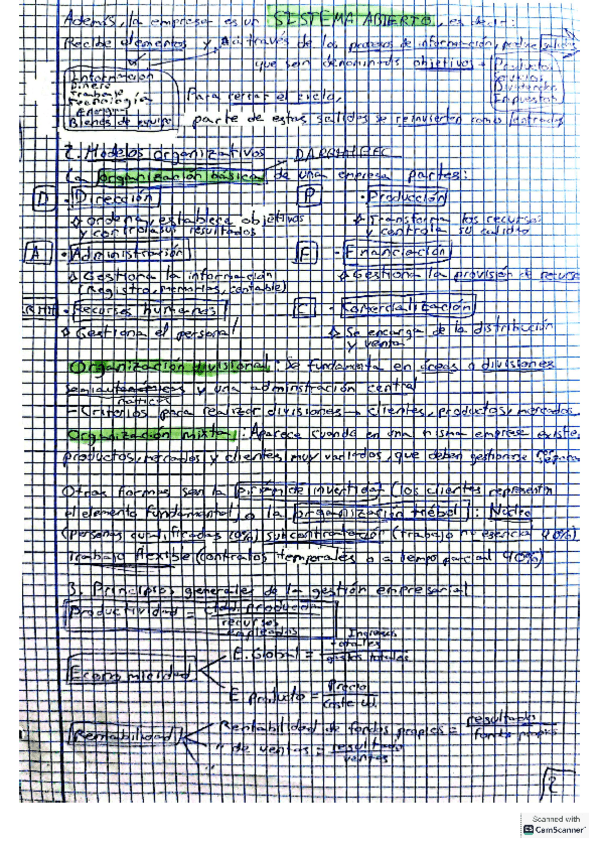 Además, la empresa es un SISTEMA ABIERTO, es decir:
Recibe elementos y a través de los procesos de información, produce salidas
que son denominados objetivos → Productos
Servicios
Dividendos
Impuestos
Información
Dinero
Trabajo
Tecnología
Energía
Bienes de equipo
Para cerrar el ciclo,
parte de estas salidas se reinvierten como entradas
2. Modelos organizativos
La organización básica de una empresa partes:
D · Dirección
ordena y establece objetivos
y controla sus resultados
P · Producción
Transforma los recursos
y controla su calidad
A · Administración
Gestiona la información
(Registro, memorias, contable)
F · Financiación
Gestiona la provisión de recursos
RHH · Recursos humanos
Gestiona el personal
C · Comercialización
Se encarga de la distribución
y venta
Organización divisional: Se fundamenta en áreas o divisiones
y una administración central
- Criterios para realizar divisiones → clientes, productos, mercados
Organización mixta: Aparece cuando en una misma empresa existen
productos, mercados y clientes muy variados, que deben gestionarse
Otras formas son la pirámide invertida (los clientes representan
el elemento fundamental) o la organización trébol: Núcleo
(personas cualificadas 20%) subcontratación (trabajo no esencial 40%)
trabajo flexible (contratos temporales o a tiempo parcial 40%)
3. Principios generales de la gestión empresarial
Productividad = producción
recursos
empleados
Economicidad
E. Global = Ingresos
totales
gastos totales
E. producto = Precio
Coste ud.
Rentabilidad
Rentabilidad de fondos propios = resultados
fondos propios
" de ventas = resultado
ventas
"
2
Scanned with
CS CamScanner